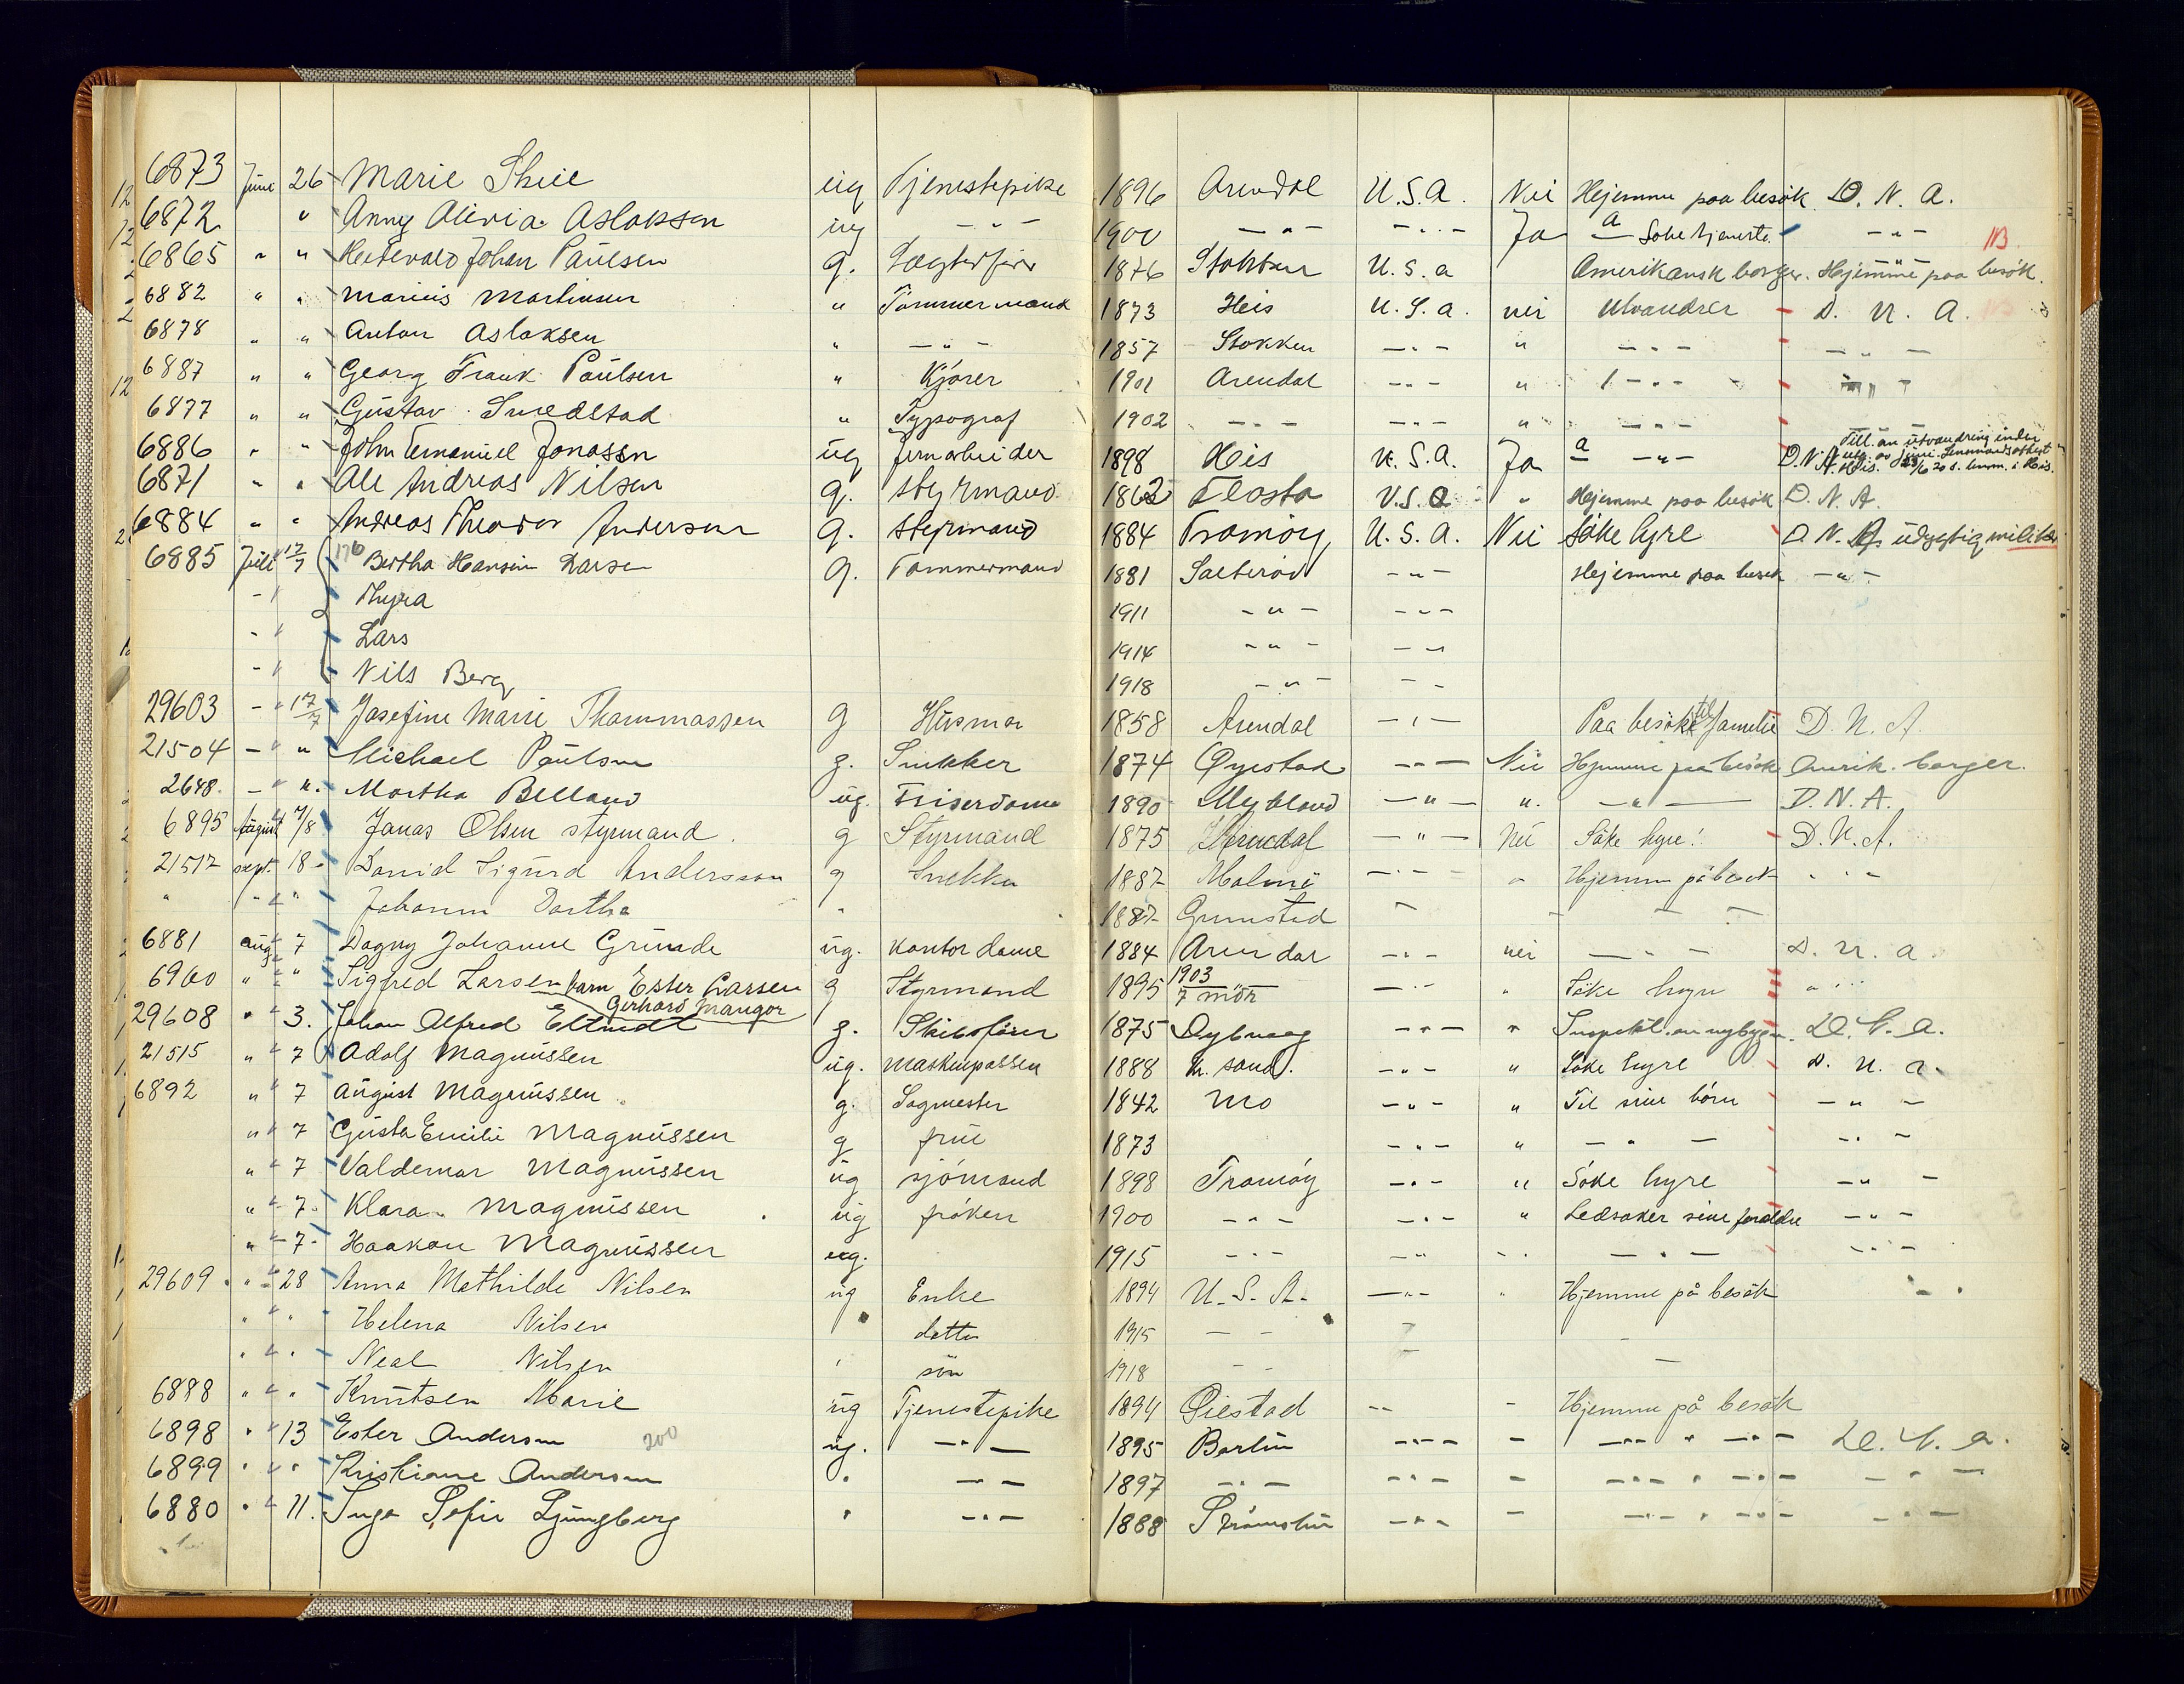 6873 June 26 Marie Skeie ug Tjenestepike 1896 Arendal U.S.A. Nei Hjemme paa besøk D. N. A.
6872 " Anny Olivia Aslaksen ug - " - 1900 - " - - " - Ja a Søke tjeneste - " -
6865 " " Johan Paulsen g. 1876 Stokken U.S.a Amerikansk borger. Hjemme paa besøk. NB.
6882 " " Marius Martinsen " Tømmermand 1873 Heis U.S.a. nei Utvandrer D. N. A.
6878 " " Anton Aslaksen " - " - 1857 Stokken - " - " - " - - " -
6887 " " Georg Frank Paulsen " Kjører 1901 Arendal - " - " - " - - " -
6877 " " Gustav Smedstad " Typograf 1902 - " - - " - " - " -
6886 " " John Emanuel Jonassn ug Jernarbeider 1898 His U.S.A. Ja a - " - D.N.A.
6871 " " Ole Andreas Nilsen g. Styrmand 1862 Flosta U.S.A " Hjemme paa besøk D. N. A.
6884 " " Andreas Theodor Andersen g. Styrmand 1884 Tromøy U.S.A. Nei Søke hyre D. N. A. udygtig militær
6885 Juli 17/7 176 Bertha Hansine Larsen g. Tømmermand 1881 Salterød - " - Hejemme paa besøk - " -
- " Thyra 1911 - " - - " -
- " Lars 1914 - " - - "
- " Nils Berg 1918 - " - - -
29603 - " 17/7 Josefine Marie Thommassen g Husmor 1858 Arendal - " - Paa besøk til familie D. N. A.
21504 - " " Michael Paulsen g. Snekker 1874 Øyestad - " - Nei Hjemme paa besøk Amrik. borger.
2648. - " " Martha Belland ug. Friserdame 1890 Mykland - " - " - " - D.N.A.
6895 August 7/8 Jonas Olsen styrmand g Styrmand 1875 Arendal - " - Nei Søke hyre! D. N. A.
21517 sept. 18 - David Sigurd Andersson g Snekker 1887 Malmö - " - " Hjemme på besøk " " "
" " " Johanna Dorthe " 1887 Grimstad
6881 aug 7 Dagny Johanne Grunde ug. Kontor dame 1884 Arendal - " - nei - " - D. N. a
6960 " " Sigfred Larsen barn Ester Larsen g Styrmand 1895 1903 - " - " Søke hyre " " "
Gerhard Mangor
29608 " 3. Johan Alfred g. Skibsfører 1875 Dybvaag - " - " D. N. a.
21515 " 7 Adolf Magnussen ug. Maskinpasser 1888 Kr. sand. - " - " Søke hyre D. N. a.
6892 " 7 August Magnussen g. Sagmester 1842 Mo - " - " Til sine børn - " -
" 7 Gusta Emilie Magnussen g frue 1873 - " - " - " - - " -
" 7 Valdemar Magnussen ug sjømand 1898 Tromøy - " - " Søke hyre - " -
" 7. Klara Magnussen ug frøken 1900 - " - - " - " Ledsaker sine foreldre - " -
" 7. Haakon Magnussen ug. 1915 - " - - " " - " - - " -
29609 " 28 Anna Mathilde Nilsen ug Enke 1894 U.S.A. - " - " Hjemme på besøk
" " Helena Nilsen datter 1915 - -
" " " Neal Nilsen ' søn 1918 - -
6888 " " " Knutsen Marie ug Tjenestepike 1894 Øiestad - - - Hjemme på besøk
6898 " 13 Ester Andersen 200 ug. - " - 1895 Berlin - " - - - " - " - " - D. N. a.
6899 " " " Kristiane Andersen " - - 1897 - " - - " - - - " - " - " - - " -
6880 " " 11. Inga Sofie Ljungberg " - " - 1888 - " - - - " - " - " - - " -